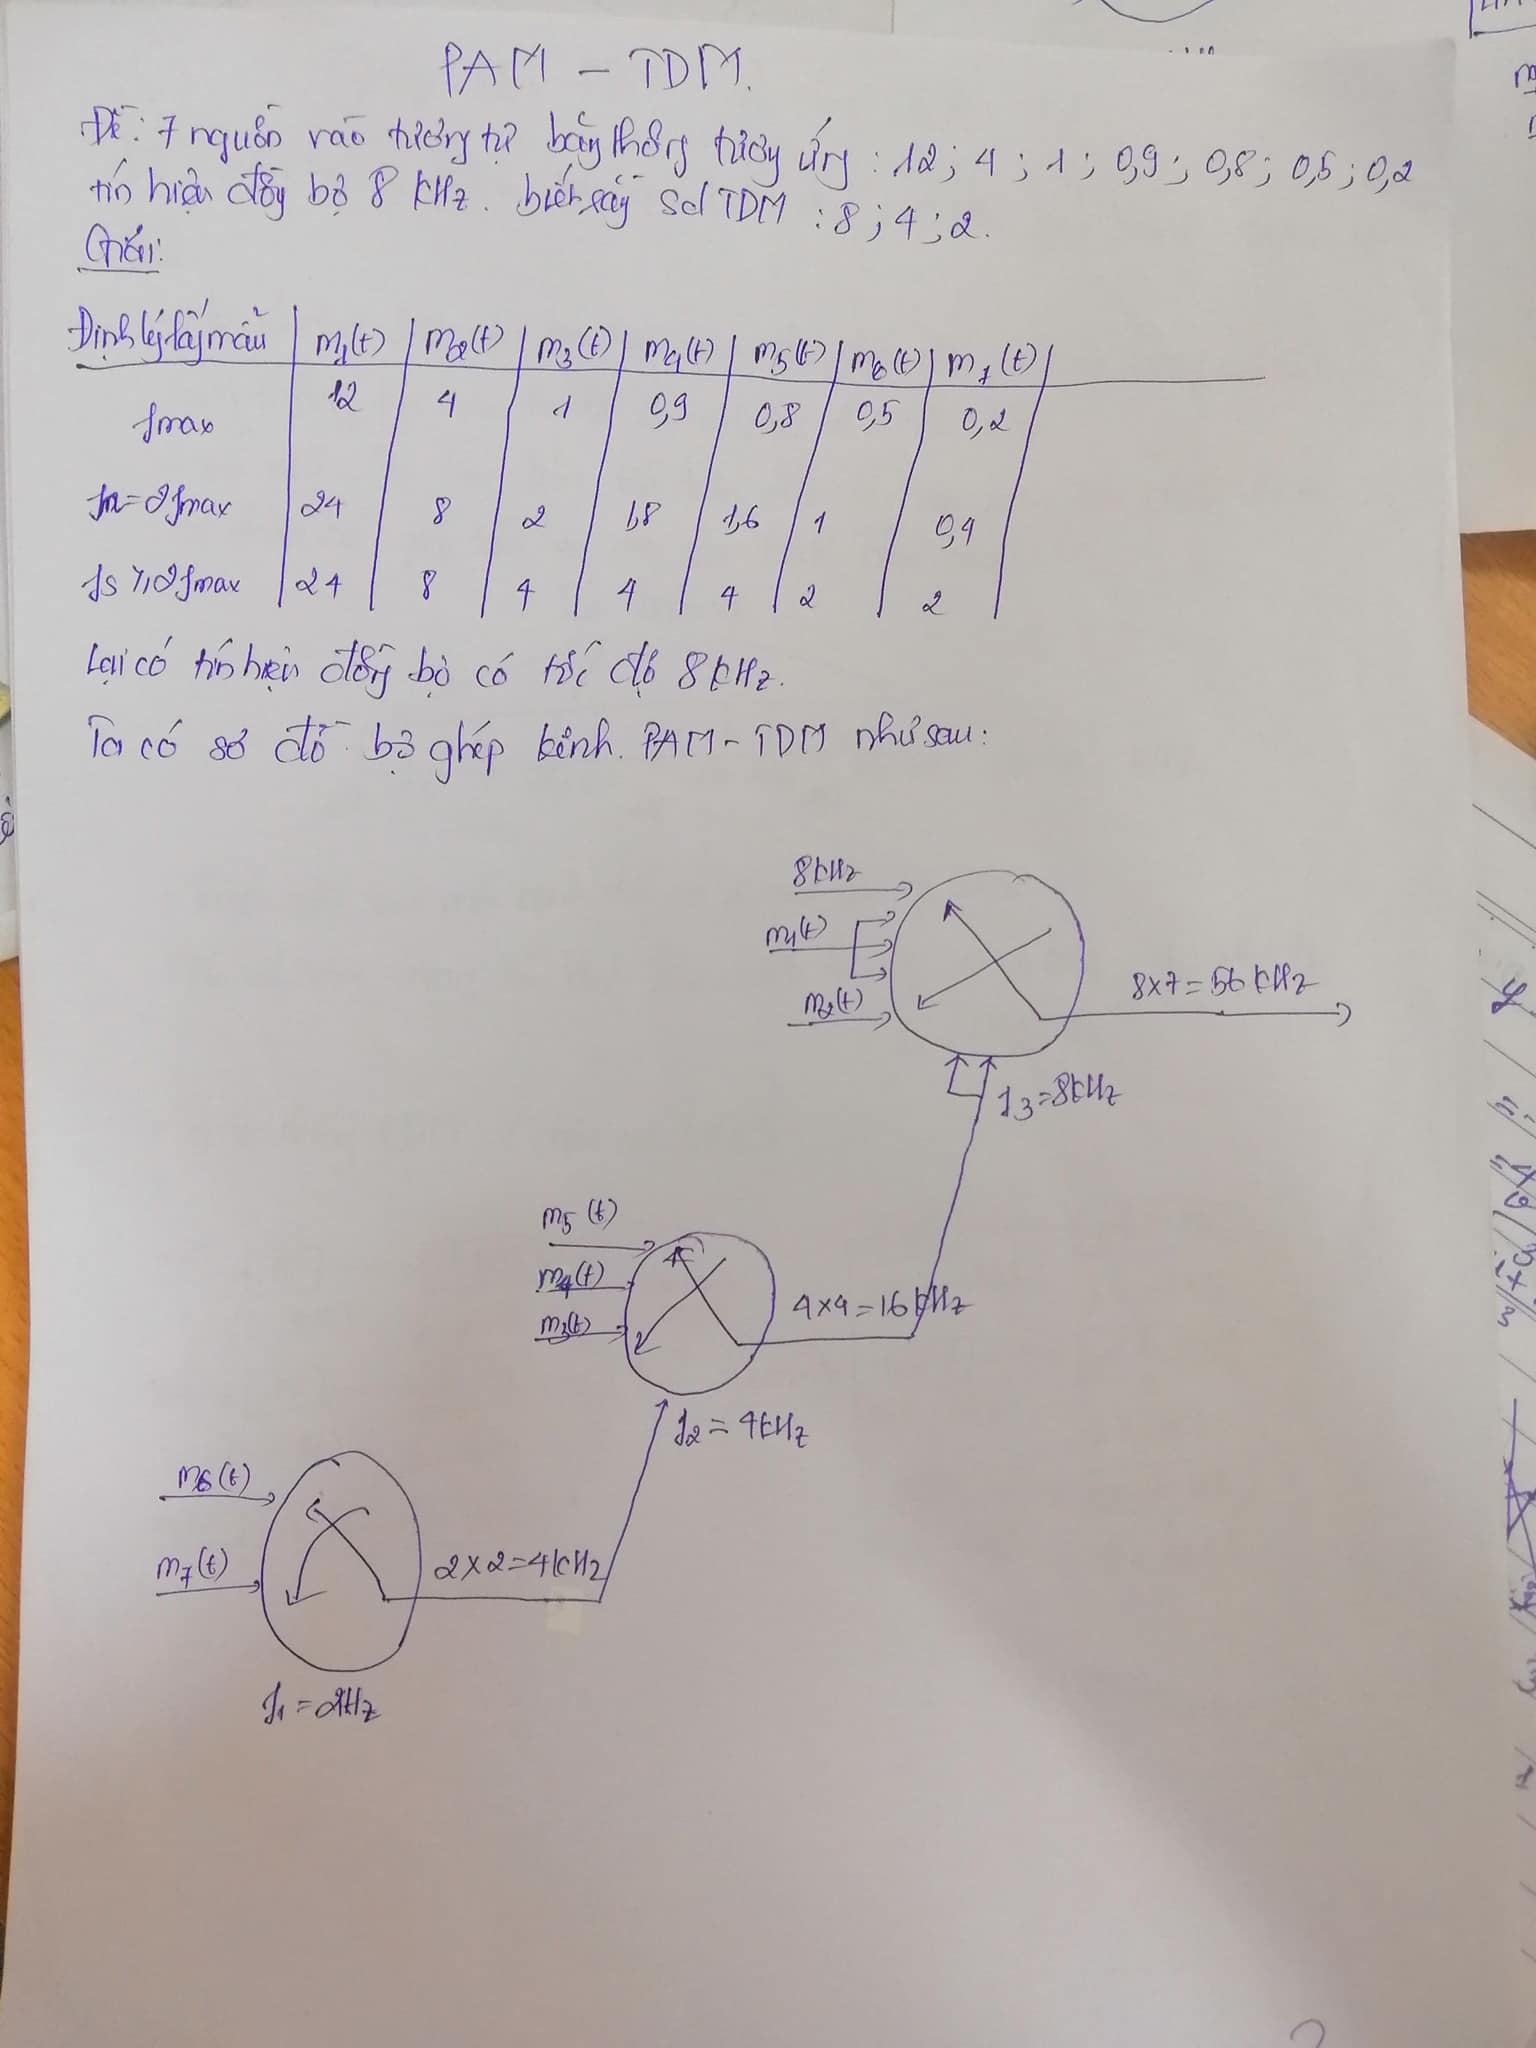 PAM - TDM.
Đề: 7 nguồn vào tương tự băng thông tương ứng : 12 ; 4 ; 1 ; 0,9 ; 0,8 ; 0,5 ; 0,2
tín hiệu đồng bộ 8 kHz. biết TDM : 8 ; 4 ; 2.
Giải:
Định lý lấy mẫu m1(t) m2(t) m3(t) m4(t) m5(t) m6(t) m7(t)
fmax 12 4 1 0,9 0,8 0,5 0,2
fn=2fmax 24 8 2 1,8 1,6 1 0,4
fs ≥ 2fmax 24 8 4 4 4 2 2
Lại có tín hiệu đồng bộ có tốc độ 8 kHz.
Ta có sơ đồ bộ ghép kênh. PAM - TDM như sau:
8kHz
m1(t)
m2(t)
8x7=56 kHz
f3=8kHz
m5(t)
m4(t)
m3(t)
4x4=16 kHz
f2=4kHz
m6(t)
m7(t)
2x2=4kHz
f1=2kHz